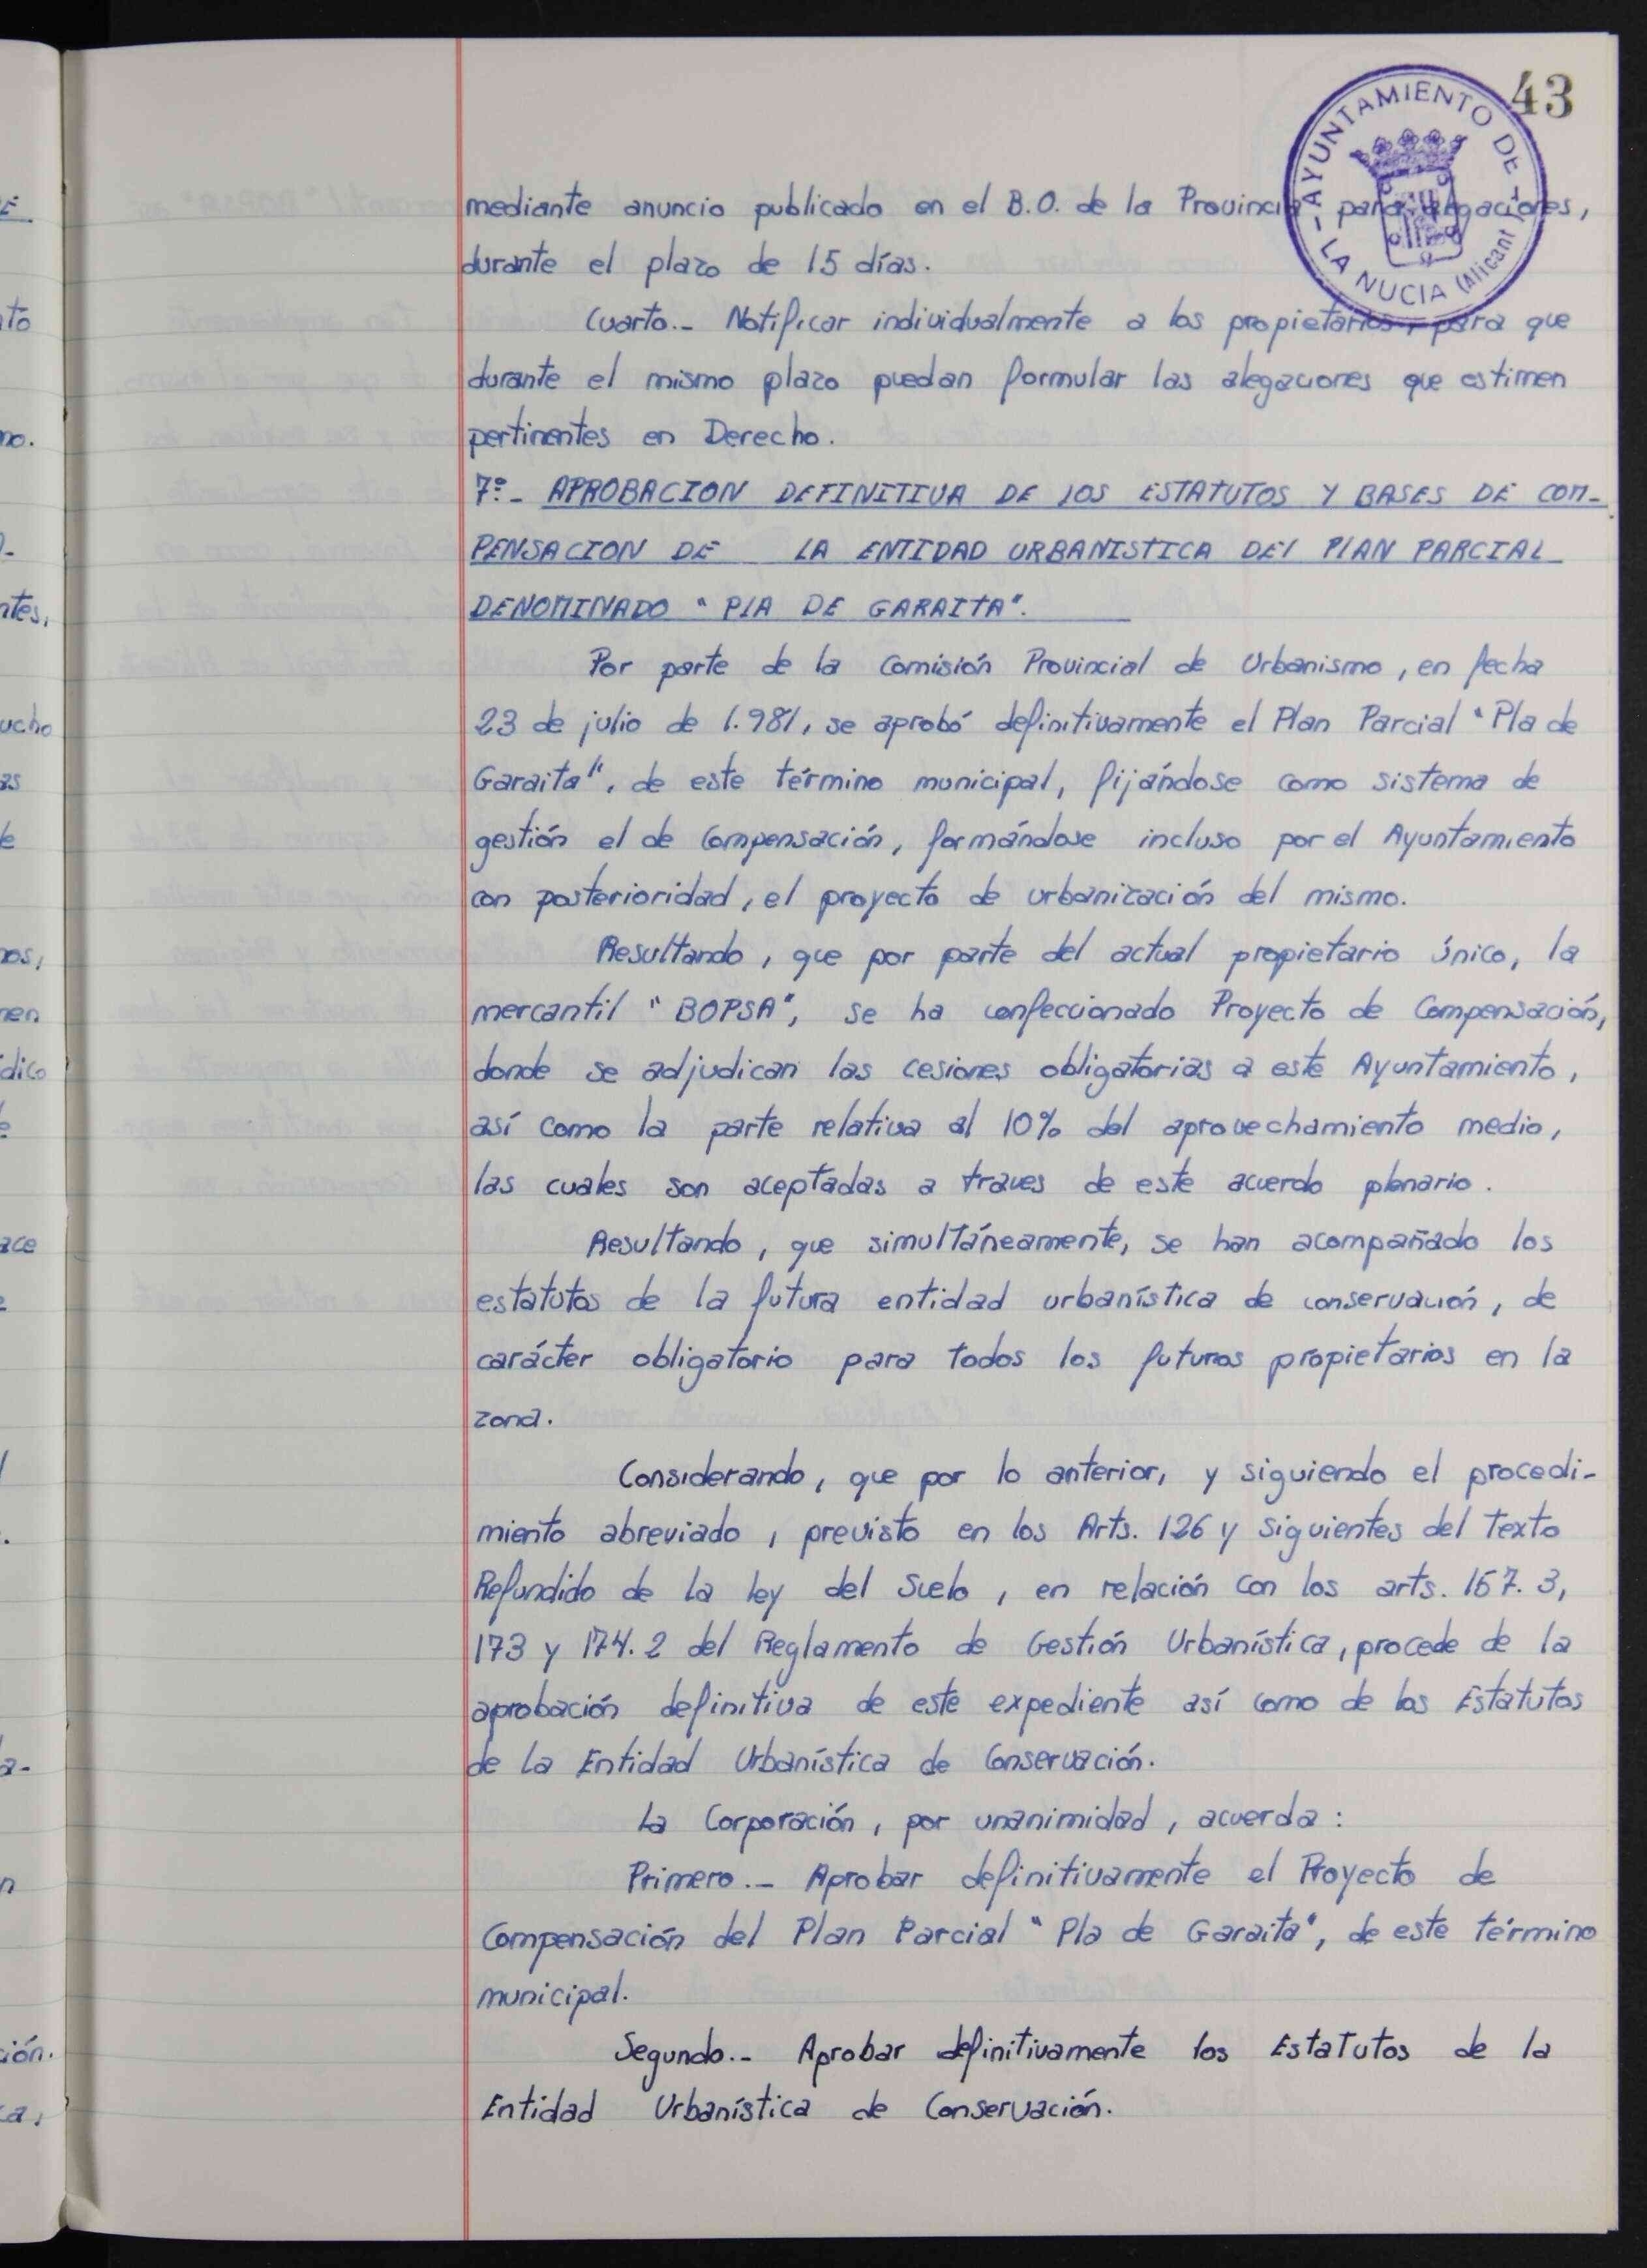 43
AYUNTAMIENTO DE
LA NUCIA (Alicant
mediante anuncio publicado en el B.O. de la Provincia para alegaciones,
durante el plazo de 15 días.
Cuarto.- Notificar individualmente a los propietarios, para que
durante el mismo plazo puedan formular las alegaciones que estimen
pertinentes en Derecho.
7º.- APROBACION DEFINITIVA DE LOS ESTATUTOS Y BASES DE COM-
PENSACION DE LA ENTIDAD URBANISTICA DEL PLAN PARCIAL
DENOMINADO "PLA DE GARAITA".
Por parte de la Comisión Provincial de Urbanismo, en fecha
23 de julio de 1.981, se aprobó definitivamente el Plan Parcial "Pla de
Garaita", de este término municipal, fijándose como sistema de
gestión el de Compensación, formándose incluso por el Ayuntamiento
con posterioridad, el proyecto de urbanización del mismo.
Resultando, que por parte del actual propietario único, la
mercantil "BOPSA", se ha confeccionado Proyecto de Compensación,
donde se adjudican las cesiones obligatorias a este Ayuntamiento,
así como la parte relativa al 10% del aprovechamiento medio,
las cuales son aceptadas a traves de este acuerdo plenario.
Resultando, que simultáneamente, se han acompañado los
estatutos de la futura entidad urbanística de conservación, de
carácter obligatorio para todos los futuros propietarios en la
zona.
Considerando, que por lo anterior, y siguiendo el procedi-
miento abreviado, previsto en los Arts. 126 y siguientes del Texto
Refundido de la Ley del Suelo, en relación con los arts. 167.3,
173 y 174.2 del Reglamento de Gestión Urbanística, procede de la
aprobación definitiva de este expediente así como de los Estatutos
de la Entidad Urbanística de Conservación.
La Corporación, por unanimidad, acuerda:
Primero.- Aprobar definitivamente el Proyecto de
Compensación del Plan Parcial "Pla de Garaita", de este término
municipal.
Segundo.- Aprobar definitivamente los Estatutos de la
Entidad Urbanística de Conservación.